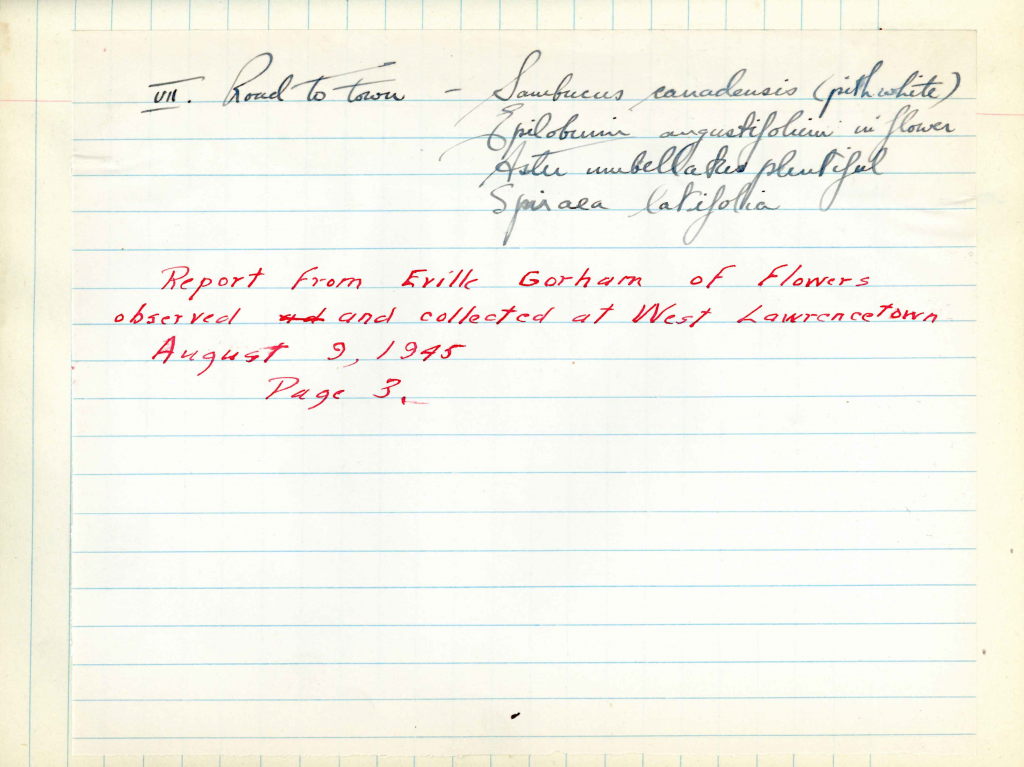 VII. Road to town - Sambucus canadensis (pith white)
Epilobium angustifolium in flower
Aster umbellatus plentiful
Spiraea latifolia
Report from Eville Gorham of flowers
observed ad and collected at West Lawrencetown
August 9, 1945
Page 3.